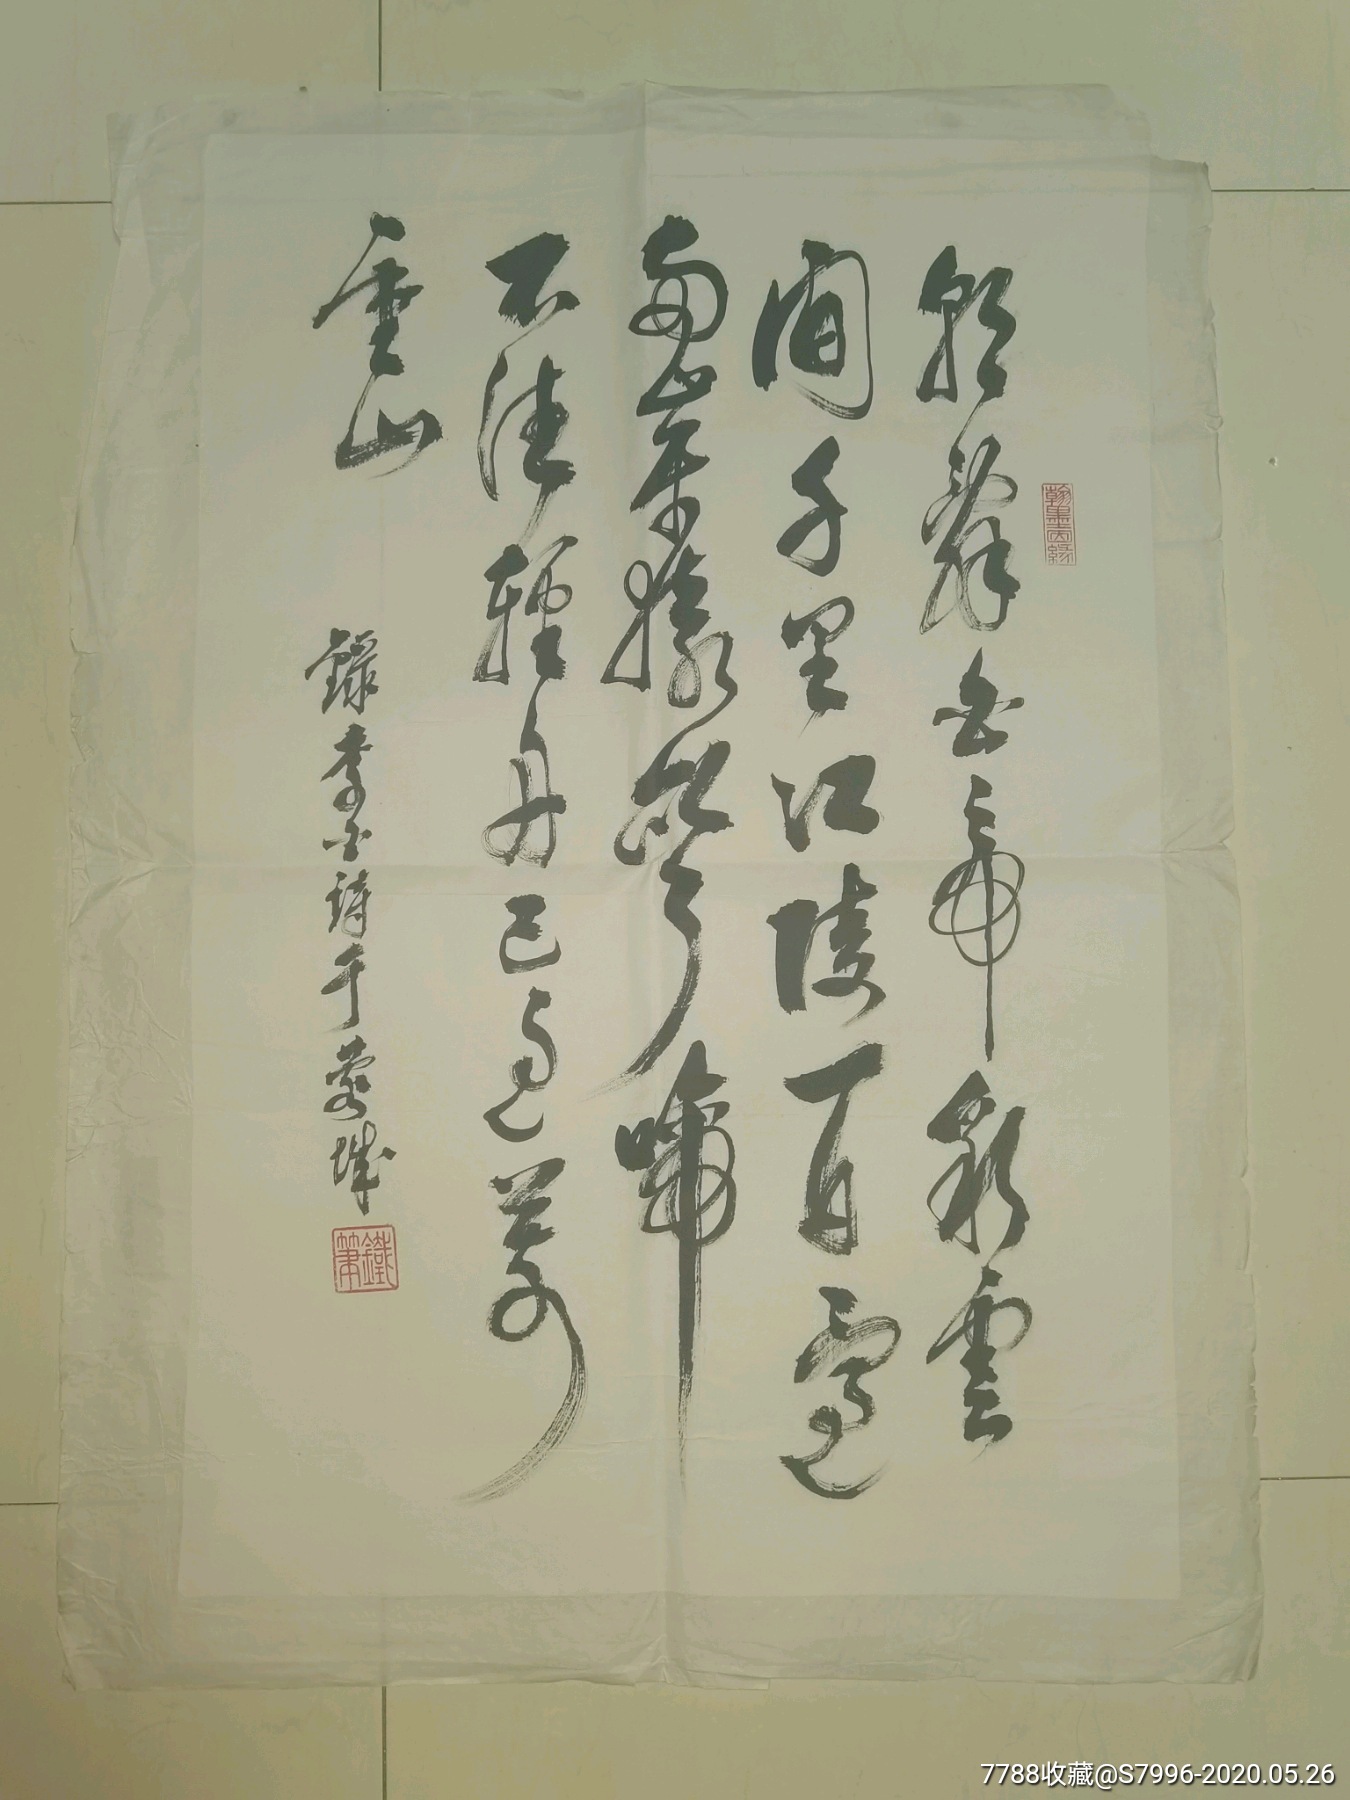 朝辭白帝彩雲
間千里江陵一日還
兩岸猿聲啼
不住輕舟已過萬
重山
錄李白詩于蒙城
翰墨因緣
鐵筆
7788收藏@S7996-2020.05.26